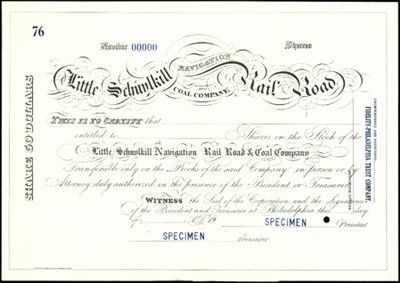 76
Number 00000 Shares
Little Schuylkill NAVIGATION Rail Road
COAL COMPANY.
SHARE 50 DOLLARS
THIS IS TO CERTIFY that
entitled to Shares in the Stock of the
Little Schuylkill Navigation Rail Road & Coal Company
Transferable only on the Books of the said Company in person or by
Attorney duly authorized in the presence of the President or Treasurer.
WITNESS the Seal of the Corporation and the Signatures
of the President and Treasurer at Philadelphia this day
of A.D. 19
SPECIMEN President
SPECIMEN Treasurer
FIDELITY-PHILADELPHIA TRUST COMPANY,